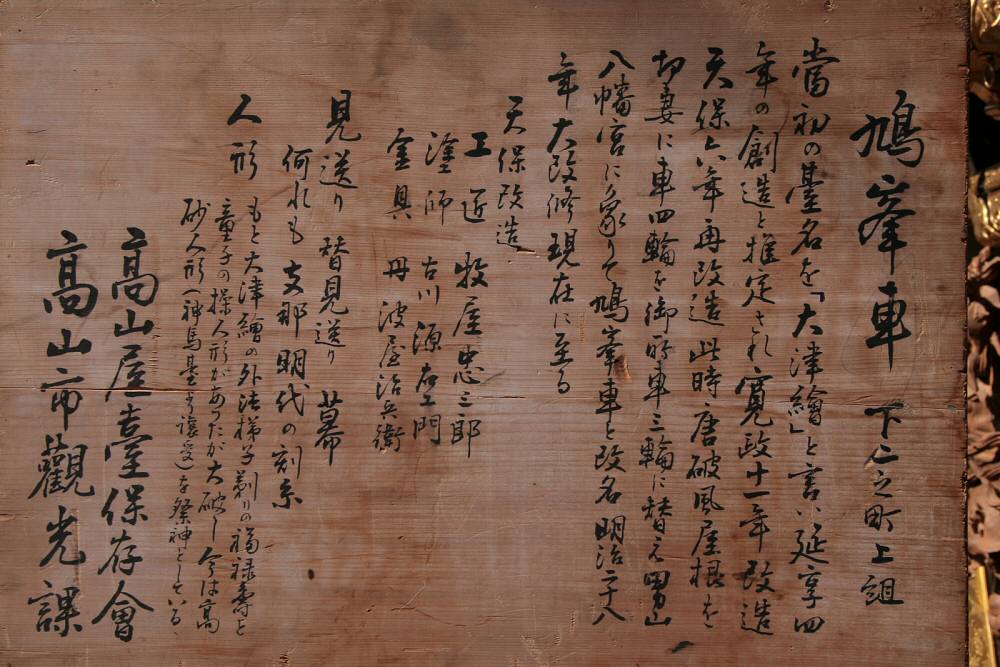 鳩峯車 下二之町上組
當初の臺名を「大津繪」と言い延享四
年の創造と推定され寛政十一年改造
天保六年再改造此時唐破風屋根を
切妻に車四輪を御所車三輪に替え男山
八幡宮に象りて鳩峯車と改名明治二十八
年大改修現在に至る
天保改造
工匠 牧屋忠三郎
塗師 古川源右エ門
金具 丹波屋治兵衛
見送り 替見送り 幕
何れも支那明代の刻糸
人形 もと大津繪の外法梯子剃りの福禄壽と
童子の操人形があったが大破し今は高
砂人形(神馬臺より譲受)を祭神としている、
高山屋臺保存會
高山市觀光課